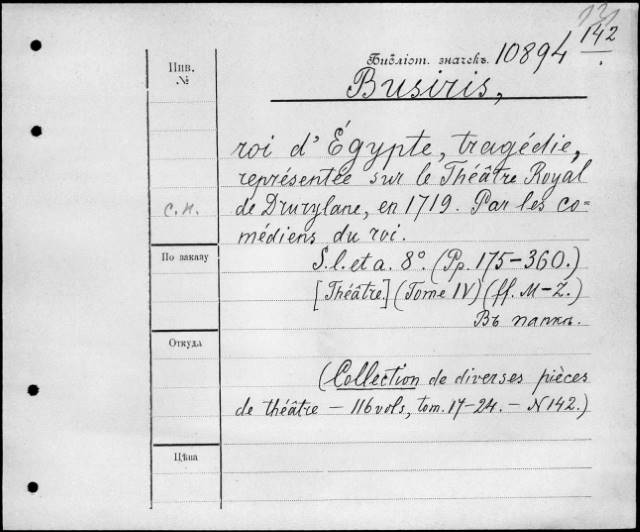 Инв.
№
Библіот. значекъ. 10894 142
Busiris,
roi d'Égypte, tragédie,
représentée sur le Théâtre Royal
de Drurylane, en 1719. Par les co=
médiens du roi.
S. l. et a. 8°. (Pp. 175-360.)
[Théâtre.] (Tome IV) (ff. M-Z.)
Въ папкѣ.
По заказу
Откуда
(Collection de diverses pièces
de théâtre - 116 vols, tom. 17-24. - N 142.)
Цѣна